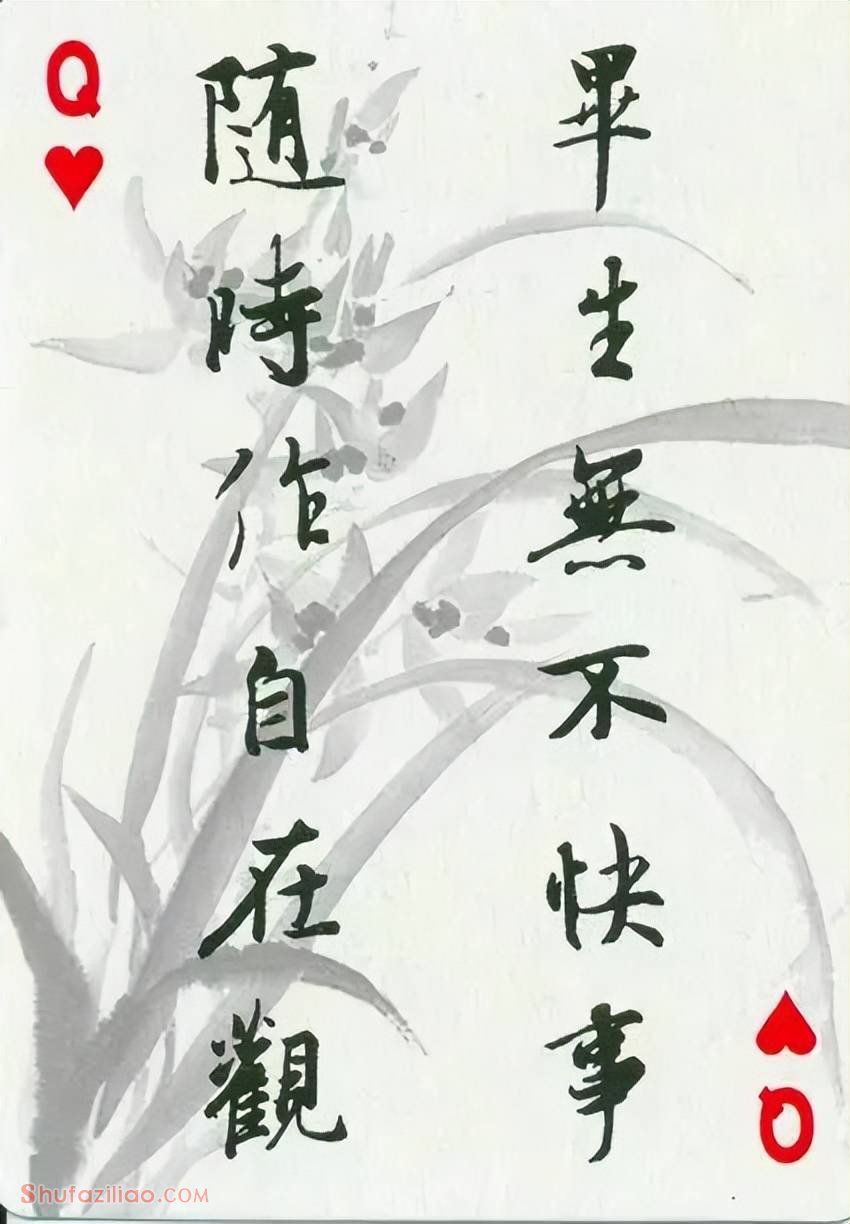 Q
畢生無不快事
隨時作自在觀
Q
Shufaziliao.COM